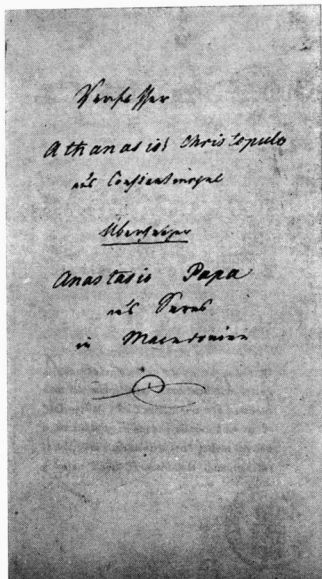 Verfasser
Athanasios Christopulo
aus Constantinopel
Übersetzer
Anastasis Papa
aus
in Macedonien